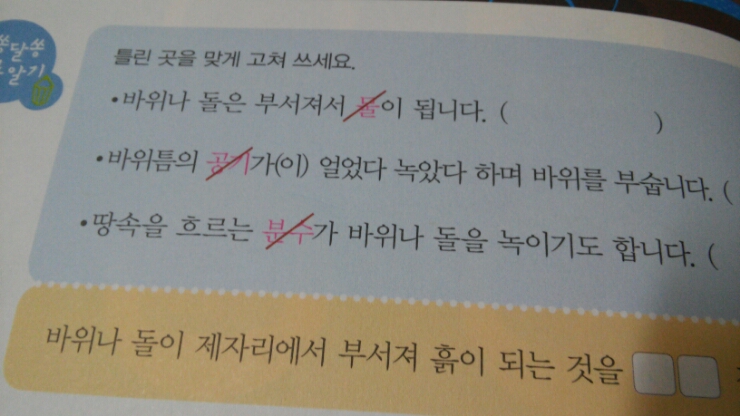 쏭달쏭
알기
틀린 곳을 맞게 고쳐 쓰세요.
•바위나 돌은 부서져서 물이 됩니다. ( )
•바위틈의 공기가(이) 얼었다 녹았다 하며 바위를 부숩니다. (
•땅속을 흐르는 분수가 바위나 돌을 녹이기도 합니다. (
바위나 돌이 제자리에서 부서져 흙이 되는 것을